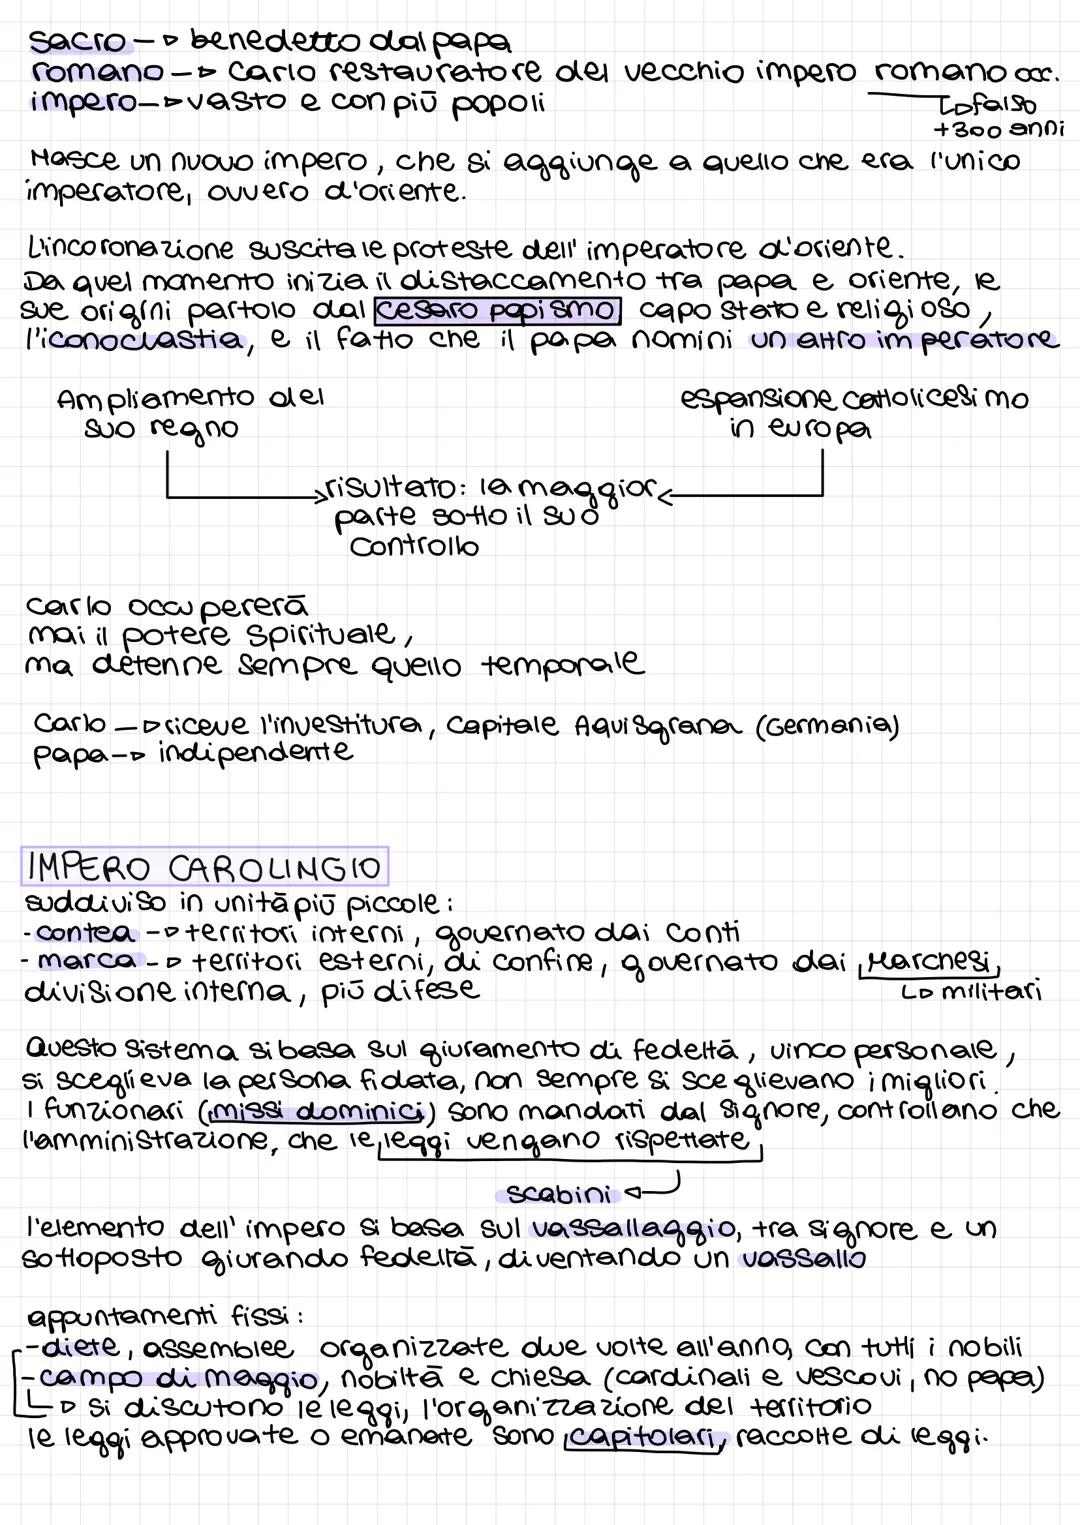 sacro → benedetto dal papa
romano → Carlo restauratore del vecchio impero romano occ.
↳ falso
+300 anni
impero → vasto e con più popoli
Nasce un nuovo impero, che si aggiunge a quello che era l'unico
imperatore, ovvero d'oriente.
L'incoronazione suscita le proteste dell'imperatore d'oriente.
Da quel momento inizia il distaccamento tra papa e oriente, le
sue origini partolo dal cesaro papismo, capo stato e religioso,
l'iconoclastia, e il fatto che il papa nomini un altro imperatore
Ampliamento del
suo regno
espansione cattolicesimo
in europa
risultato: la maggior
parte sotto il suo
controllo
carlo occupererà
mai il potere spirituale,
ma detenne sempre quello temporale
Carlo → riceve l'investitura, Capitale Aquisgrana (Germania)
papa → indipendente
IMPERO CAROLINGIO
suddiviso in unità più piccole:
- contea → territori interni, governato dai Conti
- marca → territori esterni, di confine, governato dai Marchesi,
↳ militari
divisione interna, più difese
Questo sistema si basa sul giuramento di fedeltà, vinco personale,
si sceglieva la persona fidata, non sempre si sceglievano i migliori.
I funzionari (missi dominici) sono mandati dal signore, controllano che
l'amministrazione, che le leggi vengano rispettate
scabini
l'elemento dell'impero si basa sul vassallaggio, tra signore e un
sottoposto giurando fedeltà, diventando un vassallo
appuntamenti fissi:
- diete, assemblee organizzate due volte all'anno, con tutti i nobili
- campo di maggio, nobiltà e chiesa (cardinali e vescovi, no papa)
↳ si discutono le leggi, l'organizzazione del territorio
le leggi approvate o emanate sono capitolari, raccolte di leggi.